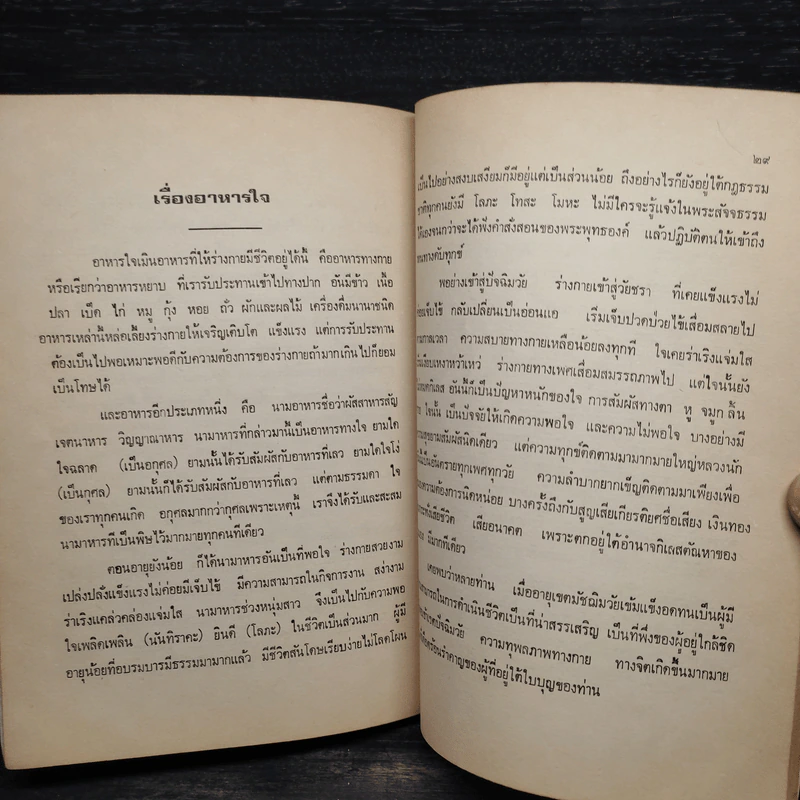 เรื่องอาหารใจ
อาหารใจเมินอาหารที่ให้ร่างกายมีชีวิตอยู่ได้นี้ คืออาหารทางกาย
หรือเรียกว่าอาหารหยาบ ที่เรารับประทานเข้าไปทางปาก อันมีข้าว เนื้อ
ปลา เป็ด ไก่ หมู กุ้ง หอย ถั่ว ผักและผลไม้ เครื่องดื่มนานาชนิด
อาหารเหล่านี้หล่อเลี้ยงร่างกายให้เจริญเติบโต แข็งแรง แต่การรับประทาน
ต้องเป็นไปพอเหมาะพอดีกับความต้องการของร่างกายถ้ามากเกินไปก็ยอม
เป็นโทษได้
และอาหารอีกประเภทหนึ่ง คือ นามอาหารชื่อว่าผัสสาหารสัญ
เจตนาหาร วิญญาณาหาร นามาหารที่กล่าวมานี้เป็นอาหารทางใจ ยามใด
ใจฉลาด (เป็นอกุศล) ยามนั้นได้รับสัมผัสกับอาหารที่เลว ยามใดใจโง่
(เป็นกุศล) ยามนั้นก็ได้รับสัมผัสกับอาหารที่เลว แต่ตามธรรมดา ใจ
ของเราทุกคนเกิด อกุศลมากกว่ากุศลเพราะเหตุนี้ เราจึงได้รับและสะสม
นามาหารที่เป็นพิษไว้มากมายทุกคนทีเดียว
ตอนอายุยังน้อย ก็ได้นามาหารอันเป็นที่พอใจ ร่างกายสวยงาม
เปล่งปลั่งแข็งแรงไม่ค่อยมีเจ็บไข้ มีความสามารถในกิจการงาน สง่างาม
ร่าเริงแคล่วคล่องแจ่มใส นามาหารช่วงหนุ่มสาว จึงเป็นไปกับความพอ
ใจเพลิดเพลิน (นันทิราคะ) ยินดี (โลภะ) ในชีวิตเป็นส่วนมาก ผู้มี
อายุน้อยที่อบรมบารมีธรรมมามากแล้ว มีชีวิตสันโดษเรียบง่ายไม่โลดโผน
๒๙
เป็นไปอย่างสงบเสงี่ยมก็มีอยู่แต่เป็นส่วนน้อย ถึงอย่างไรก็ยังอยู่ใต้กฎธรรม
ชาติทุกคนยังมี โลภะ โทสะ โมหะ ไม่มีใครจะรู้แจ้งในพระสัจจธรรม
ได้เองจนกว่าจะได้ฟังคำสั่งสอนของพระพุทธองค์ แล้วปฏิบัติตนให้เข้าถึง
หนทางดับทุกข์
พอย่างเข้าสู่ปัจฉิมวัย ร่างกายเข้าสู่วัยชรา ที่เคยแข็งแรงไม่
ค่อยเจ็บไข้ กลับเปลี่ยนเป็นอ่อนแอ เริ่มเจ็บปวดป่วยไข้เสื่อมสลายไป
ตามกาลเวลา ความสบายทางกายเหลือน้อยลงทุกที ใจเคยร่าเริงแจ่มใส
เงียบเหงาหว้าเหว่ ร่างกายทางเพศเสื่อมสมรรถภาพไป แต่ใจนั้นยัง
อันนี้ก็เป็นปัญหาหนักของใจ การสัมผัสทางตา หู จมูก ลิ้น
ใจนั้น เป็นปัจจัยให้เกิดความพอใจ และความไม่พอใจ บางอย่างมี
ความสุขยามสัมผัสนิดเดียว แต่ความทุกข์ติดตามมามากมายใหญ่หลวงนัก
เป็นอันตรายทุกเพศทุกวัย ความลำบากยากเข็ญติดตามมาเพียงเพื่อ
ความต้องการนิดหน่อย บางครั้งถึงกับสูญเสียเกียรติยศชื่อเสียง เงินทอง
เสียชีวิต เสียอนาคต เพราะตกอยู่ใต้อำนาจกิเลสตัณหาของ
มีมากทีเดียว
เคยพบว่าหลายท่าน เมื่ออายุเขตมัชฌิมวัยเข้มแข็งอดทนเป็นผู้มี
สามารถในการดำเนินชีวิตเป็นที่น่าสรรเสริญ เป็นที่พึ่งของผู้อยู่ใกล้ชิด
ปัจฉิมวัย ความทุพลภาพทางกาย ทางจิตเกิดขึ้นมากมาย
เดือดร้อนรำคาญของผู้ที่อยู่ใต้ใบบุญของท่าน